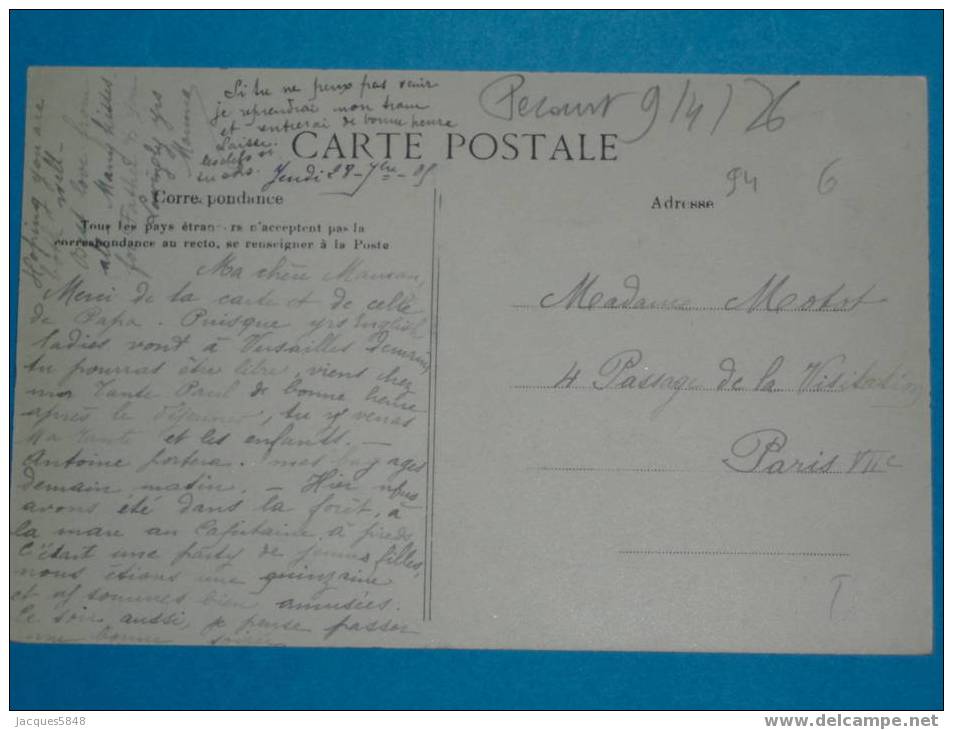 Si tu ne peux pas venir
je reprendrai mon tram
et rentrerai de bonne heure
Laisse
les clefs
Pecourt 9/4/26
CARTE POSTALE
Jeudi 28 - 7bre - 05
94 6
Correspondance
Adresse
Tous les pays étrangers n'acceptent pas la
correspondance au recto, se renseigner à la Poste
Ma chère Maman,
Merci de la carte et de celle
de Papa. Puisque yrs English
ladies vont à Versailles demain,
tu pourras être libre, vient chez
ma Tante Paul de bonne heure
après le déjeuner, tu y verras
Ma tante et les enfants. -
Antoine portera mes bagages
demain matin. - Hier nous
avons été dans la forêt, à
la mare au Capitaine à pieds
C'était une party de jeunes filles,
nous étions une quinzaine
et ns sommes bien amusées.
Ce soir aussi, je pense passer
une bonne soirée
Hoping you are
well -
Best love from
Many kisses.
for Father & you
Lovingly yrs
Madame Motot
4 Passage de la Visitation
Paris VIIe
Jacques5848
www.delcampe.net